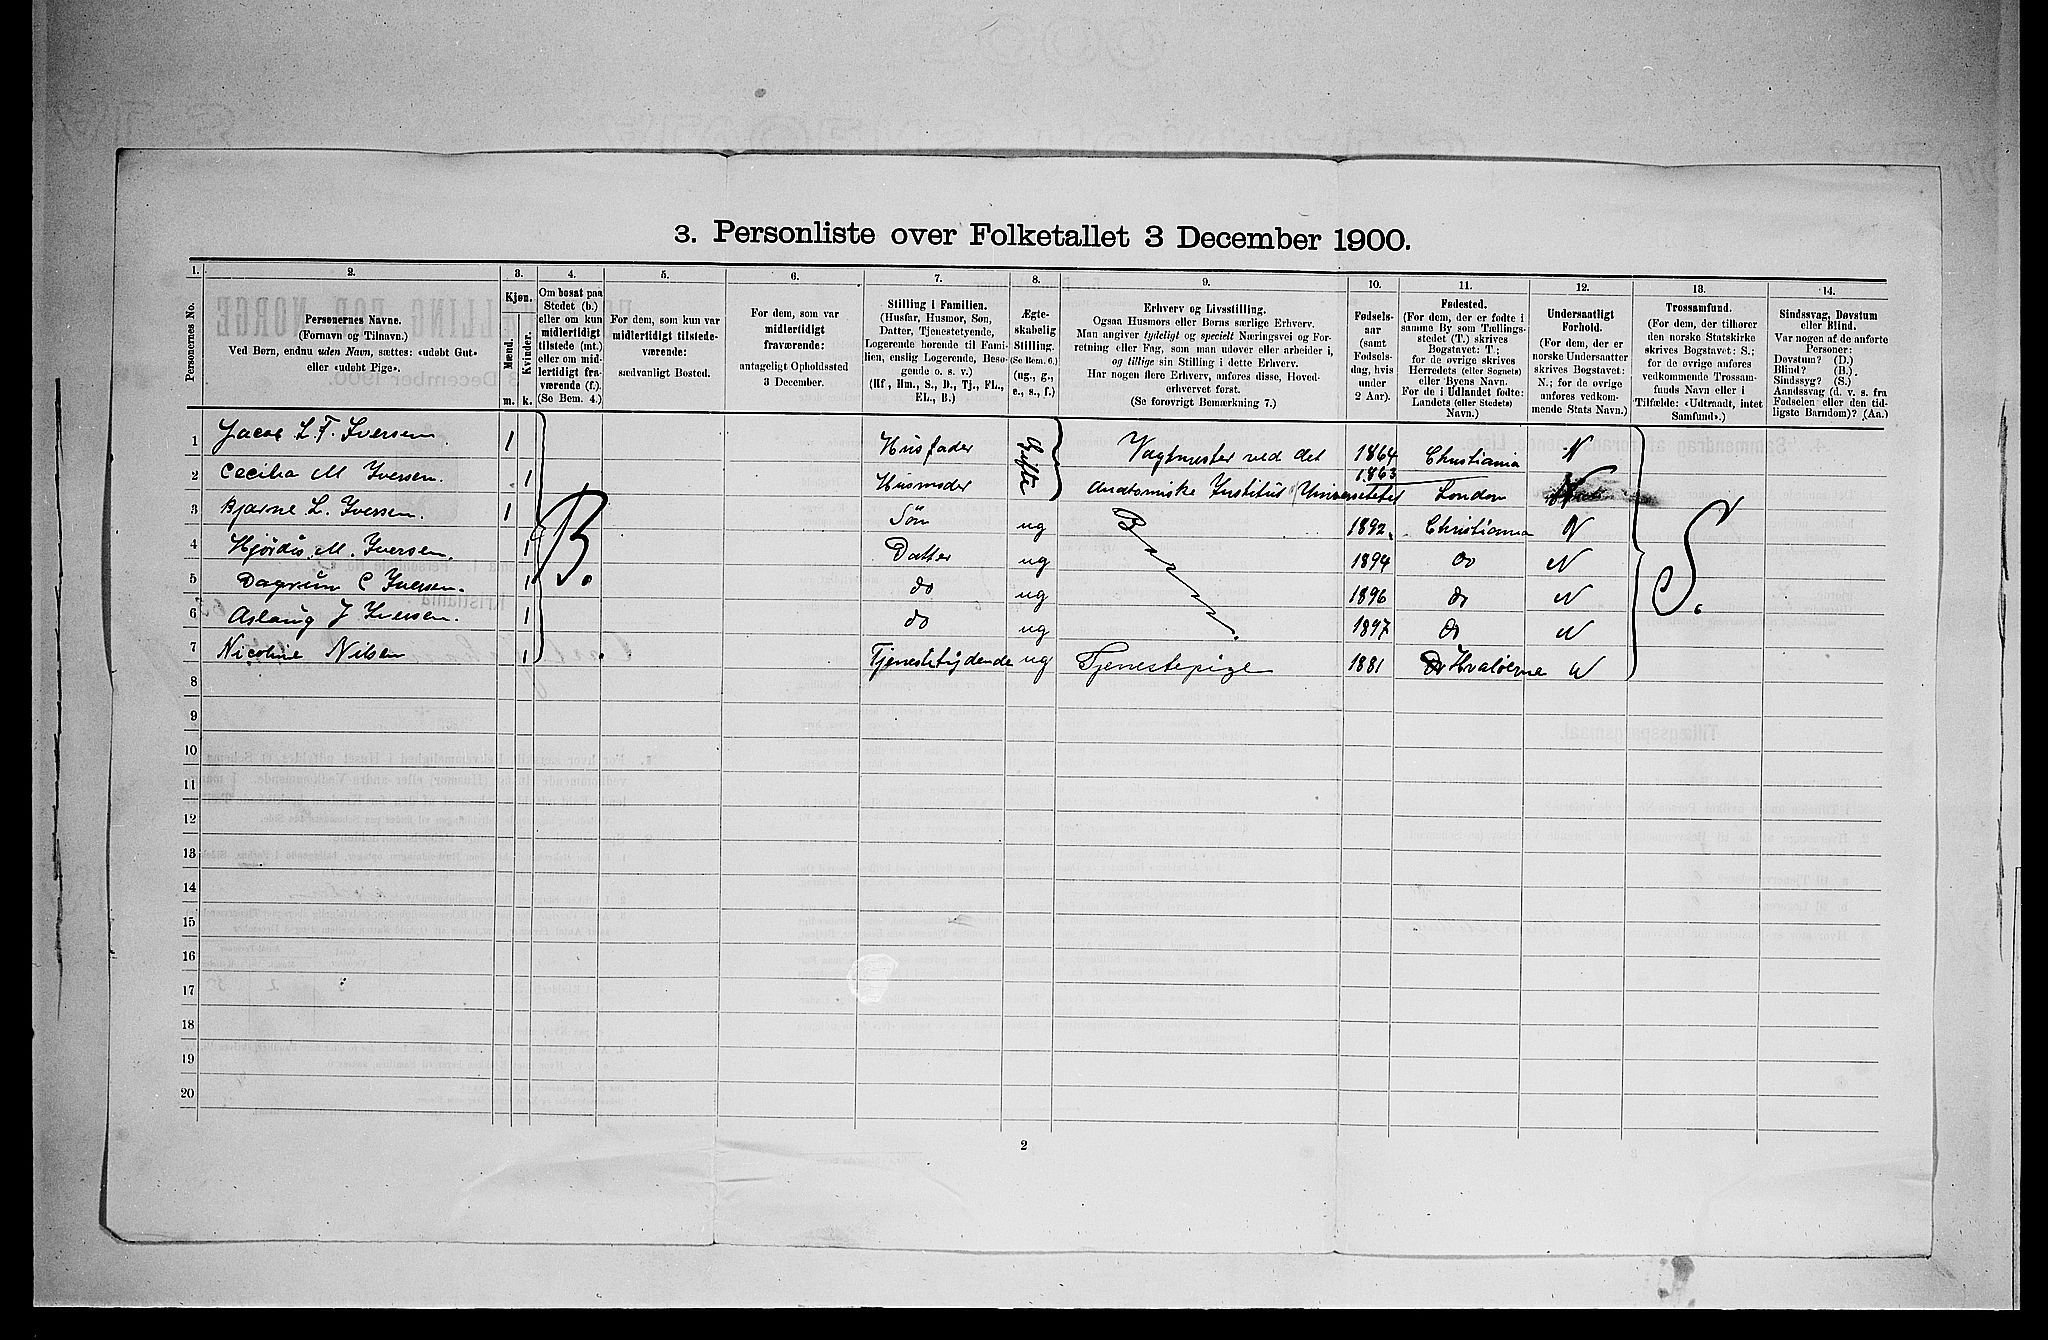 3. Personliste over Folketallet 3 December 1900.
1. 2. 3. 4. 5. 6. 7. 8. 9. 10. 11. 12. 13. 14.
Personernes No.
Personernes Navne.
(Fornavn og Tilnavn.)
Ved Børn, endnu uden Navn, sættes: «udøbt Gut»
eller «udøbt Pige».
Kjøn.
Mænd.
Kvinder.
m. k.
Om bosat paa
Stedet (b.)
eller om kun
midlertidigt
tilstede (mt.)
eller om mid-
lertidigt fra-
værende (f.).
(Se Bem. 4.)
For dem, som kun var
midlertidigt tilstede-
værende:
sædvanligt Bosted.
For dem, som var
midlertidigt
fraværende:
antageligt Opholdssted
3 December.
Stilling i Familien.
(Husfar, Husmor, Søn,
Datter, Tjenestetyende,
Logerende hørende til Fami-
lien, enslig Logerende, Besø-
gende o. s. v.)
(Hf, Hm., S., D., Tj., FL.,
EL., B.)
Ægte-
skabelig
Stilling.
(Se Bem. 6.)
(ug., g.,
e., s., f.)
Erhverv og Livsstilling.
Ogsaa Husmors eller Børns særlige Erhverv.
Man angiver tydeligt og specielt Næringsvei og For-
retning eller Fag, som man udøver eller arbeider i,
og tillige sin Stilling i dette Erhverv.
Har nogen flere Erhverv, anføres disse, Hoved-
erhvervet først.
(Se forøvrigt Bemærkning 7.)
Fødsels-
aar
(samt
Fødsels-
dag, hvis
under
2 Aar).
Fødested.
(For dem, der er fødte i
samme By som Tællings-
stedet (T.) skrives
Bogstavet: T.;
for de øvrige skrives
Herredets (eller Sognets)
eller Byens Navn.
For de i Udlandet fødte:
Landets (eller Stedets)
Navn.)
Undersaatligt
Forhold.
(For dem, der er
norske Undersaatter
skrives Bogstavet:
N.; for de øvrige
anføres vedkom-
mende Stats Navn.)
Trossamfund.
(For dem, der tilhører
den norske Statskirke
skrives Bogstavet: S.;
for de øvrige anføres
vedkommende Trossam-
funds Navn eller i
Tilfælde: «Udtraadt, intet
Samfund».)
Sindssvag, Døvstum
eller Blind.
Var nogen af de anførte
Personer:
Døvstum? (D.)
Blind? (B.)
Sindssyg? (S.)
Aandssvag (d. v. s. fra
Fødselen eller den tid-
ligste Barndom)? (Aa.)
1 Jacob L. F. Iversen. 1 Husfader Gifte Vagtmester ved det 1864 Christiania N
2 Cecilia M Iversen. 1 Husmoder Anatomiske Institut Universitetet 1863 London N
3 Bjarne L. Iversen. 1 B. Søn ug B 1892. Christiania N S.
4 Hjördis. M. Iversen. 1 Datter ug 1894 do N
5 Dagrun C Iversen. 1 do ug 1896 do N
6 Aslaug J Iversen. 1 do ug 1897 do N
7 Nicoline Nilsen 1 Tjenestetydende ug Tjenestepige 1881 Hvaløerne N
8
9
10
11
12
13
14
15
16
17
18
19
20
2